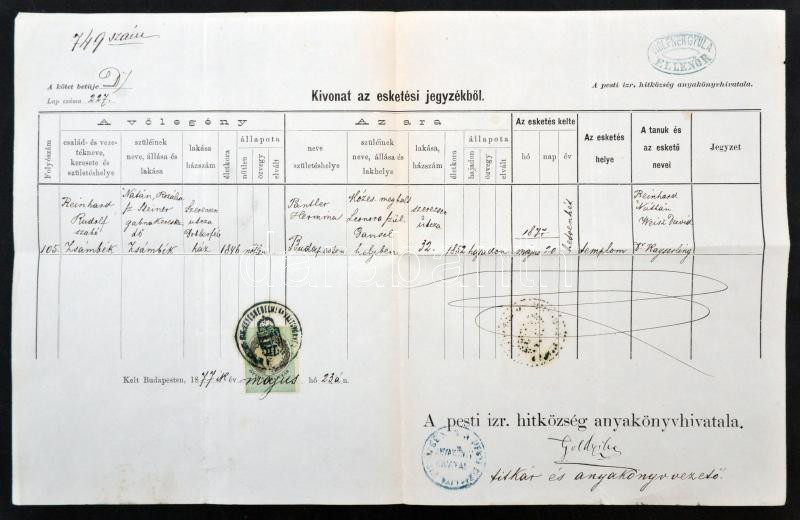 749 szám
WOLFNER GYULA
ELLENŐR
A kötet betüje D)
Lap száma 227.
A pesti izr. hitközség anyakönyvhivatala.
Kivonat az esketési jegyzékből.
Folyószám
A vőlegény
család- és veze-
tékneve,
keresete és
születéshelye
szüleinek
neve, állása és
lakása
lakása
házszám
életkora
állapota
nőtlen
özvegy
elvált
A z ara
neve
születéshelye
szüleinek
neve, állása és
lakhelye
lakása,
házszám
életkora
állapota
hajadon
özvegy
elvált
Az esketés kelte
hó nap év
Az esketés
helye
A tanuk és
az eskető
nevei
Jegyzet
105.
Reinhard
Rudolf
szabó
Zsámbék
Natán, Rozália
sz. Steiner
gabnakereske-
dő
Zsámbék
Szerecsen
utcza
ház
1846
nőtlen
Hermina
Budapesten
Mózes meghalt
Leonora szül.
helyben
szerecsen
utcza
32.
1852
hajadon
1877
május 20
templom
Reinhard
Náthán
Weisz David
Dr Kayserling
Kelt Budapesten, 1877 ik év május hó 23án.
A pesti izr. hitközség anyakönyvhivatala.
titkár és anyakönyvvezető.
darabanth